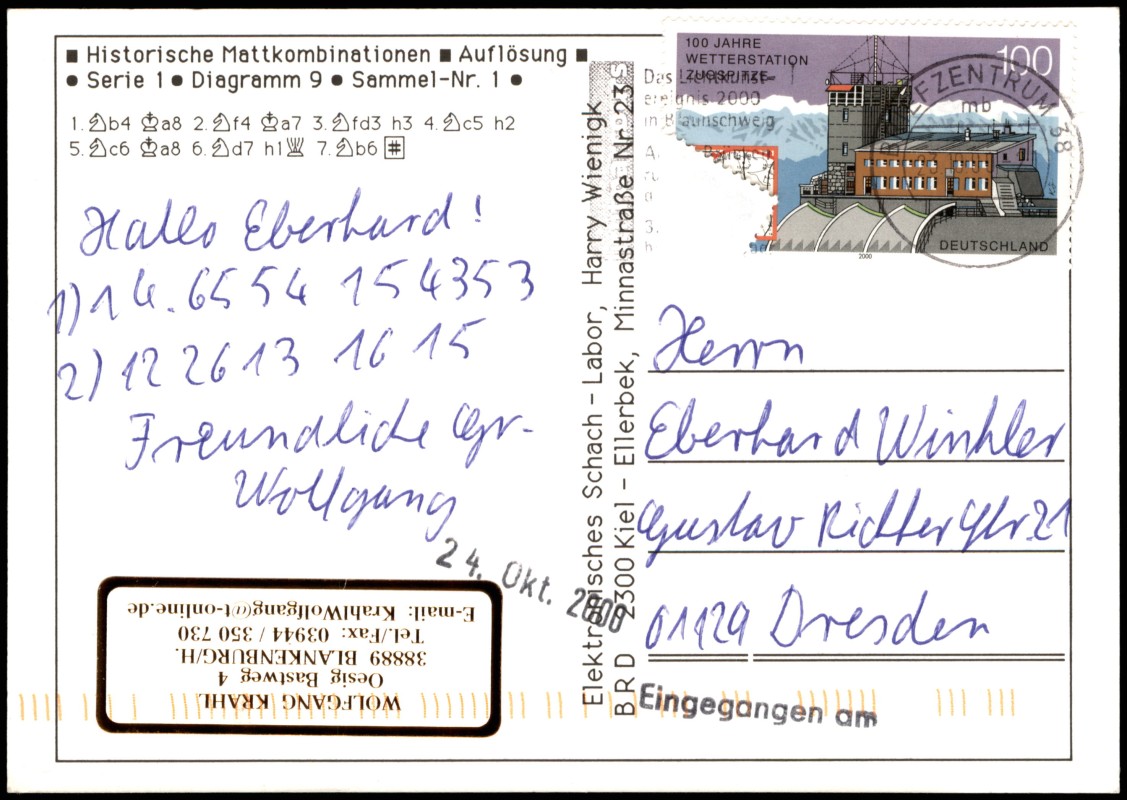 ■ Historische Mattkombinationen ■ Auflösung ■
● Serie 1 ● Diagramm 9 ● Sammel-Nr. 1 ●
1.♘b4 ♔a8 2.♘f4 ♔a7 3.♘fd3 h3 4.♘c5 h2
5.♘c6 ♔a8 6.♘d7 h1♕ 7.♘b6 #
Hallo Eberhard!
1) 14. 6554 154353
2) 12 2613 16 15
Freundliche Gr.
Wolfgang
24. Okt. 2000
WOLFGANG KRAHL
Oesig Bastweg 4
38889 BLANKENBURG/H.
Tel./Fax: 03944 / 350 730
E-mail: KrahlWolfgang@t-online.de
Elektronisches Schach-Labor, Harry Wienigk
BRD 2300 Kiel - Ellerbek, Minnastraße Nr. 23
100 JAHRE
WETTERSTATION
ZUGSPITZE
100
DEUTSCHLAND
2000
Das
ereignis 2000
in Braunschweig
BRIEFZENTRUM 38
mb
Herrn
Eberhard Winkler
Gustav Richter Str. 21
01129 Dresden
Eingegangen am